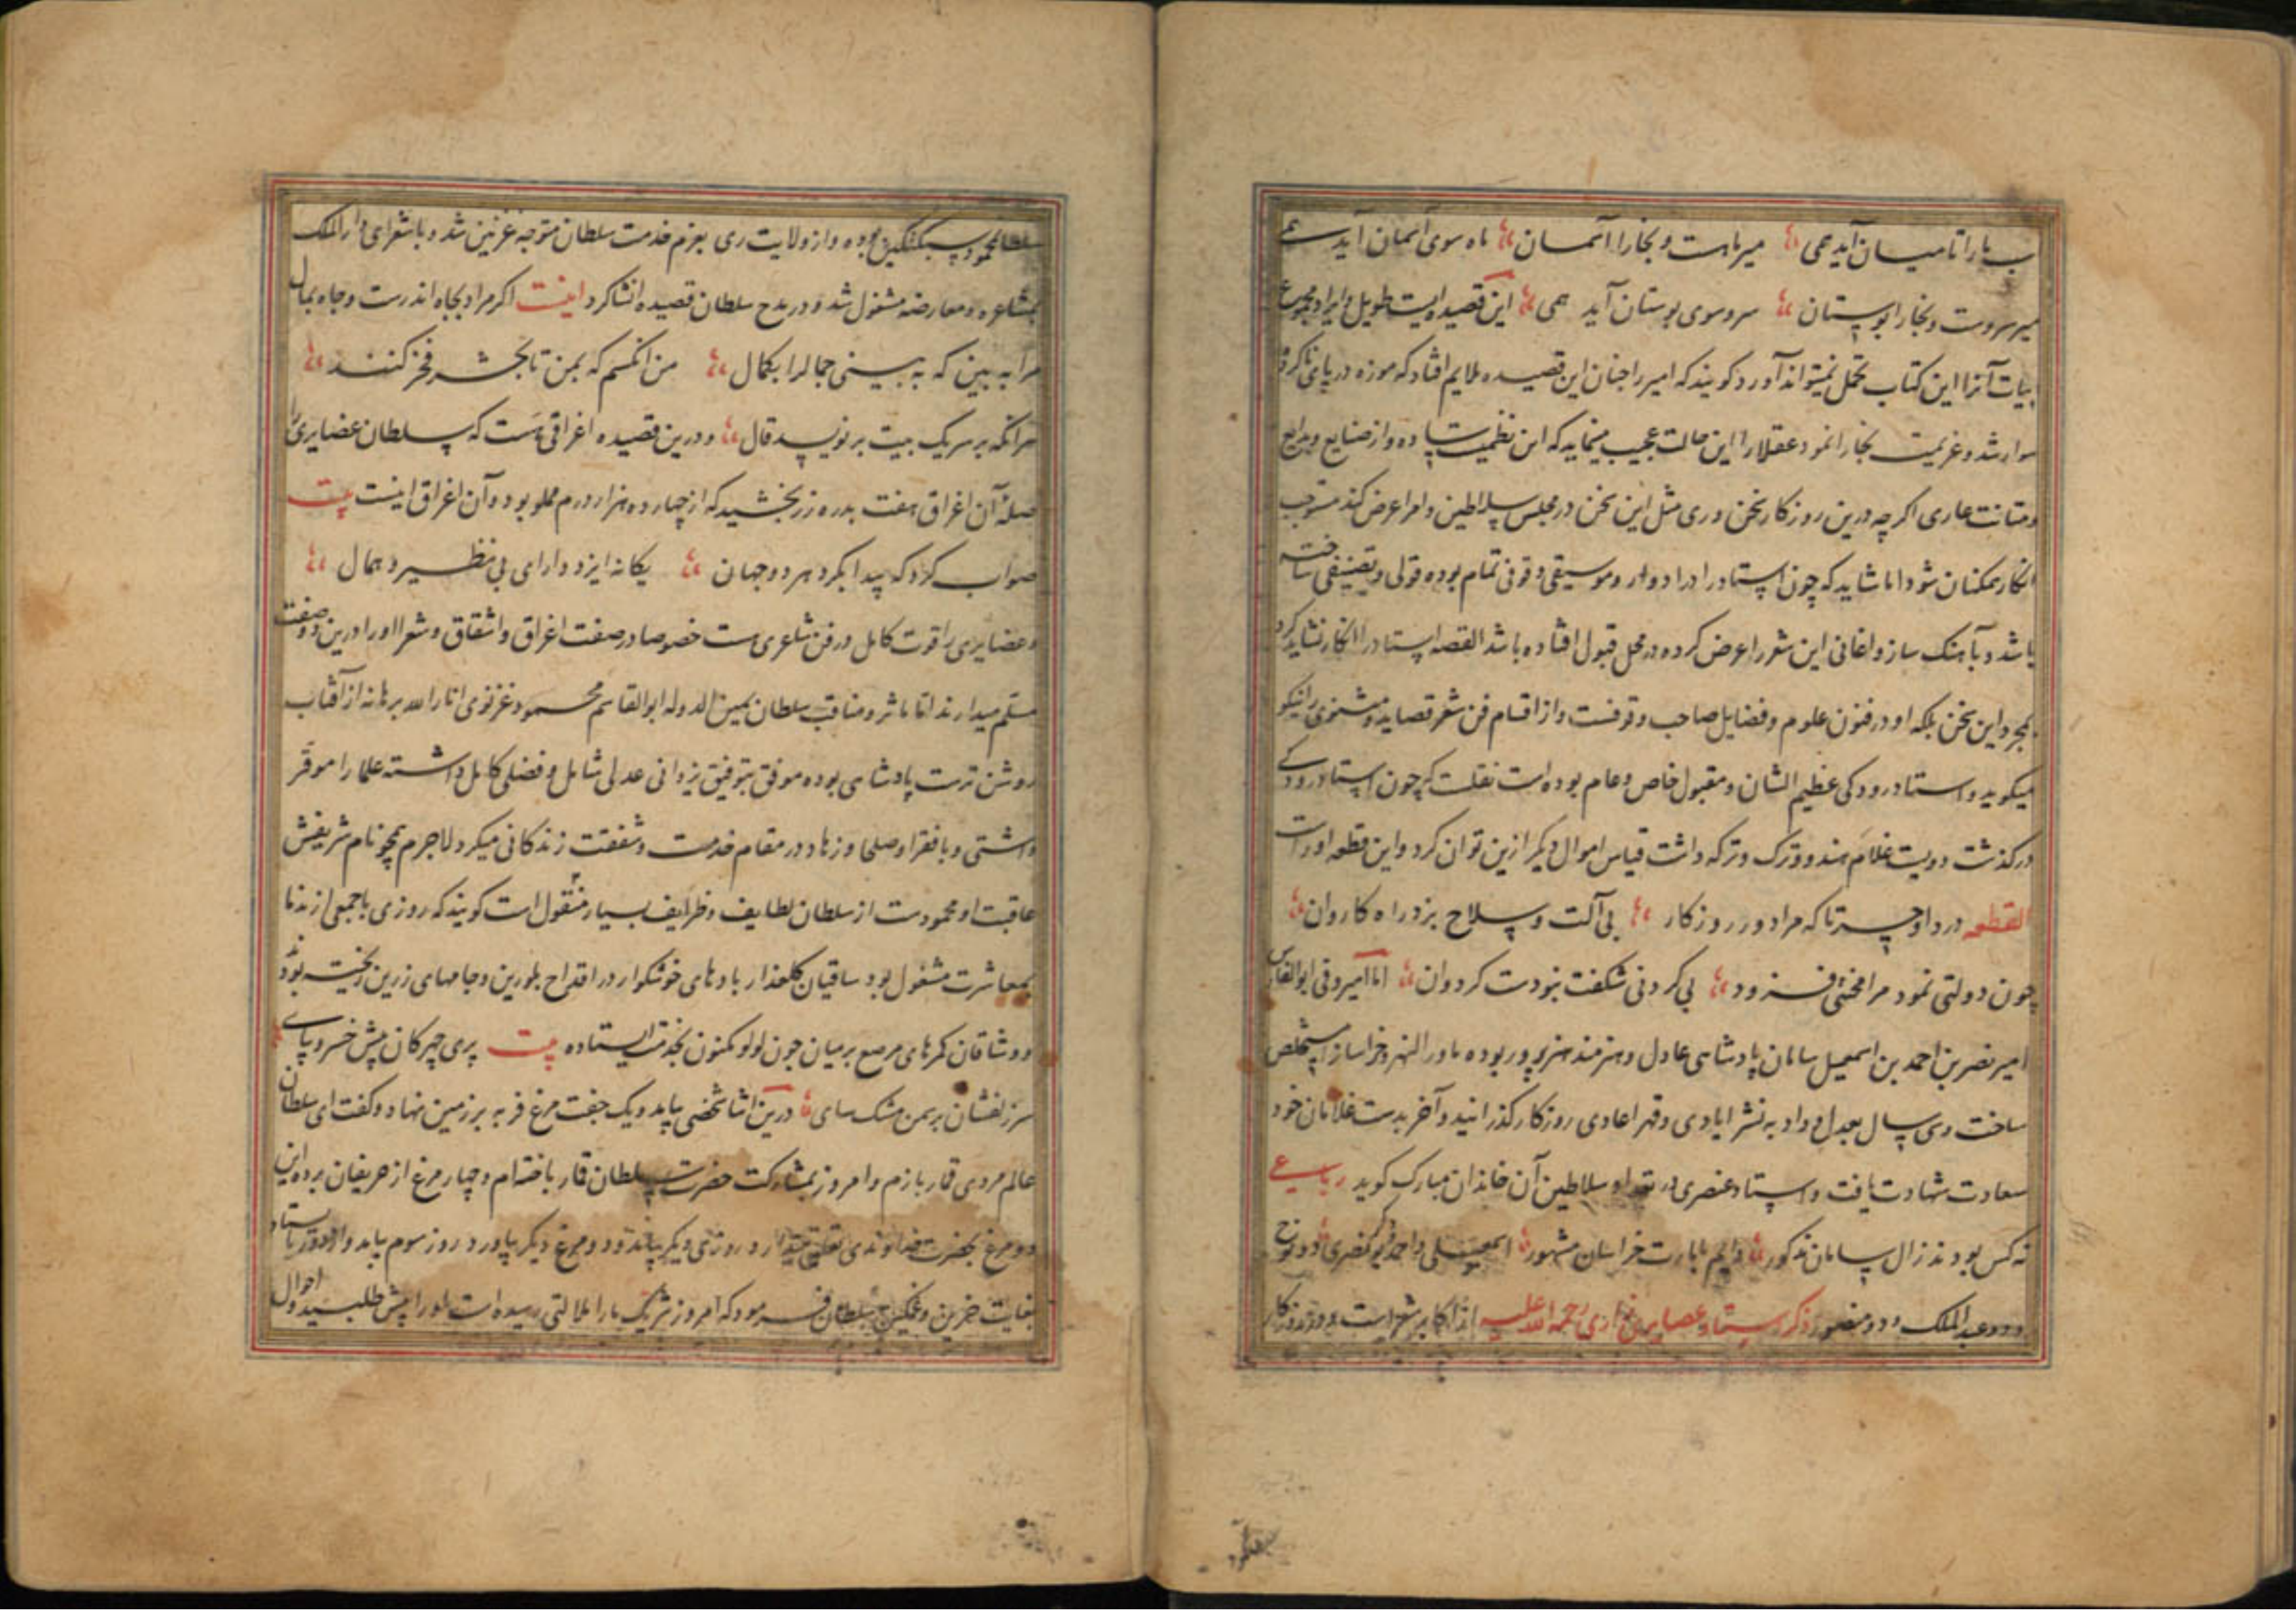 ب ما را تا میان آید همی میر ماهست و بخارا آسمان ماه سوی آسمان آید همی
میر سروست و بخارا بوستان سرو سوی بوستان آید همی این قصیده ایست طویل و ایراد مجموع
ابیات آنرا این کتاب تحمل نمیتواند آورد کویند که امیر را چنان این قصیده ملایم افتاد که موزه در پای ناکرده
سوار شد و عزیمت بخارا نمود عقلا را این حالت عجیب مینماید که این نظمیست ساده و از صنایع و بدایع
و متانت عاری اکر چه درین روزکار سخن وری مثل این سخن در مجلس سلاطین و امرا عرض کند مستوجب
انکار همکنان شود اما شاید که چون استاد را در ادوار و موسیقی وقوفی تمام بوده قولی و تصنیفی ساخته
باشد و بآهنک ساز و اغانی این شعر را عرض کرده در محل قبول افتاده باشد القصه استاد را انکار نشاید کرد
بمجرد این سخن بلکه او در فنون علوم و فضایل صاحب وقوفست و از اقسام فن شعر قصاید و مثنوی را نیکو
میکوید و استاد رودکی عظیم الشان و مقبول خاص و عام بوده است نقلست که چون استاد رودکی
درکذشت دویست غلام هندو و ترک و ترکه داشت قیاس اموال دیکر ازین توان کرد و این قطعه او راست
القطعه درد او حسرتا که مرا دور روزکار بی آلت و سلاح بزد راه کاروان
چون دولتی نمود مرا محنتی فزود بی کردنی شکفت نبودست کردوان اما امیر
امیر نصر بن احمد بن اسمعیل سامان پادشاهی عادل و هنرمند هنرپرور بوده ماورالنهر و خراسان را مستخلص
ساخت و سی سال بعدل و داد به نشر ایادی و قهر اعادی روزکار کذرانید و آخر بدست غلامان خود
سعادت شهادت یافت و استاد عنصری در تعداد سلاطین آن خاندان مبارک کوید رباعی
نه کس بودند زال سامان مذکور دایم بامارت خراسان مشهور اسمعیلی و احمدی و نصری دو نوح
و دو عبدالملک و دو منصور ذکر استاد عضایری رازی رحمة الله علیه از اکابر شعراست و در روزکار
سلطان محمود سبکتکین بوده و از ولایت ری بعزم خدمت سلطان متوجه غزنین شد و با شعرای دارالملک
بمشاعره و معارضه مشغول شد و در مدح سلطان قصیده انشا کرد اینست اکر مراد بجاه اندرست و جاه بمال
مرا ببین که به بینی جمال را بکمال من انکسم که بمن تا بحشر فخر کنند
هر انکه بر سر یک بیت بر نویسد قال و درین قصیده اغراقی هست که سلطان عضایری را
صلهٔ آن اغراق هفت بدره زر بخشید که از چهارده هزار درم مملو بود و آن اغراق اینست بیت
صواب کرد که پیدا نکرد هر دو جهان یکانه ایزد دارای بی نظیر و همال
و عضایری را قوت کامل در فن شاعری هست خصوصا در صفت اغراق و اشتقاق و شعرا او را درین دو صفت
مسلم میدارند اما مآثر و مناقب سلطان یمین الدوله ابوالقاسم محمود غزنوی انار الله برهانه از آفتاب
روشن ترست پادشاهی بوده موفق بتوفیق یزدانی عدلی شامل و فضلی کامل داشته علما را موقر
داشتی و با فقرا و صلحا و زهاد در مقام خدمت و شفقت زندکانی میکرد لاجرم همچو نام شریفش
عاقبت او محمودست از سلطان لطایف و ظرایف بسیار منقول است کویند که روزی با جمعی از ندما
بمعاشرت مشغول بود ساقیان کلعذار بادهای خوشکوار در اقداح بلورین و جامهای زرین ریخته بودند
و وشاقان کمرهای مرصع بر میان چون لولو مکنون بخدمت ایستاده بیت پری چهرکان پیش خسرو بپای
سر زلفشان بر سمن مشک سای درین اثنا شخصی بیامد و یک جفت مرغ فربه بر زمین نهاد و کفت ای سلطان
عالم مردی قمار بازم و امروز بمشارکت حضرت سلطان قمار باخته ام و چهار مرغ از حریفان برده این
دو مرغ بحضرت خداوندی روزی دیکر بیامد و دو مرغ دیکر بیاورد روز سوم بیامد
بغایت حزین و غمکین سلطان فرمود که امروز شریک ما را ملالتی رسیده است او را پیش طلبید و احوال